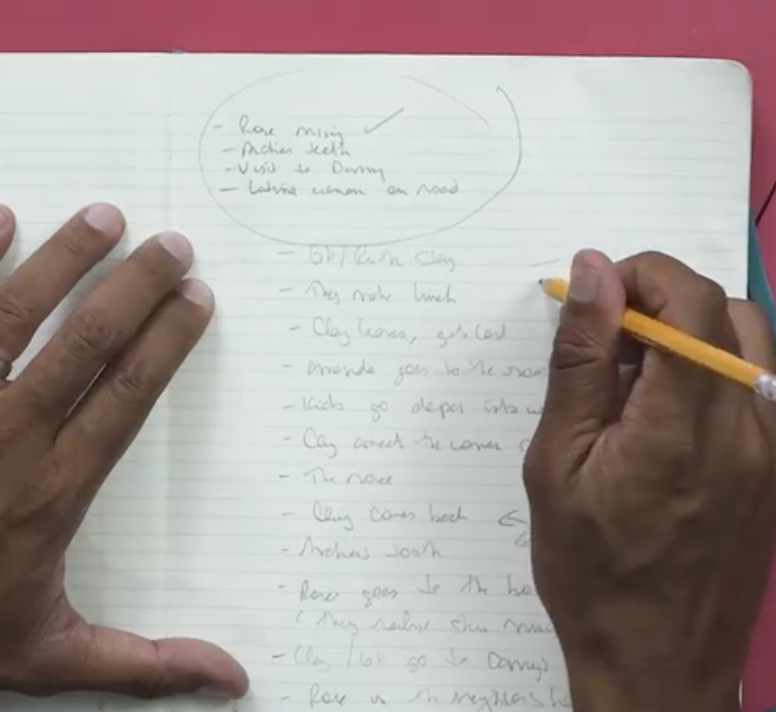 - Rose missing
- Archies teeth
- Visit to Danny
- Latina woman on road
- GH/Ruth Stay
- They make lunch
- Clay leaves, gets lost
- Amanda goes to the
- Kids go deeper into
- Clay meets the woman
- The noise
- Clay comes back
- Archies tooth
- Rose goes to the ho
They realize shes missing
- Clay / GH go to Danny's
- Rose in the neighbors h